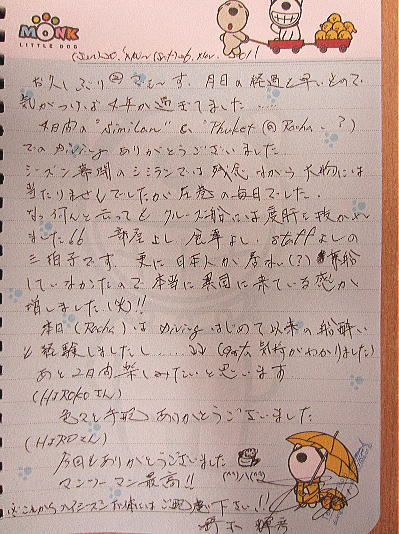 MONK
LITTLE DOG
お久しぶりでーす。月日の経過も早いもので
気がつけば4年が過ぎてました....
4日間の"Similan" & "Phuket @ Racha.?)
でのDivingありがとうございました
シーズン幕開のシミランでは残念ながら大物には
当たりませんでしたが圧巻の毎日でした。
なっ何んと言ってもクルーズ船には度肝を抜かれ
ました!! 部屋よし、食事よし、staffよしの
三拍子です。更に日本人が居ない(?)
していなかったので本当に異国に来ている感が
増しました(笑)!!
本日(Racha)はDivingはじめて以来の船酔い
も経験しましたし.....(Guest気持がわかりました)
あと2日間楽しみたいと思います
(HIROKOさん)
色々と手配ありがとうございました
(HIROさん)
今回もありがとうございました
マンツーマン最高!!
これからハイシーズンお体にはご配慮下さい!!